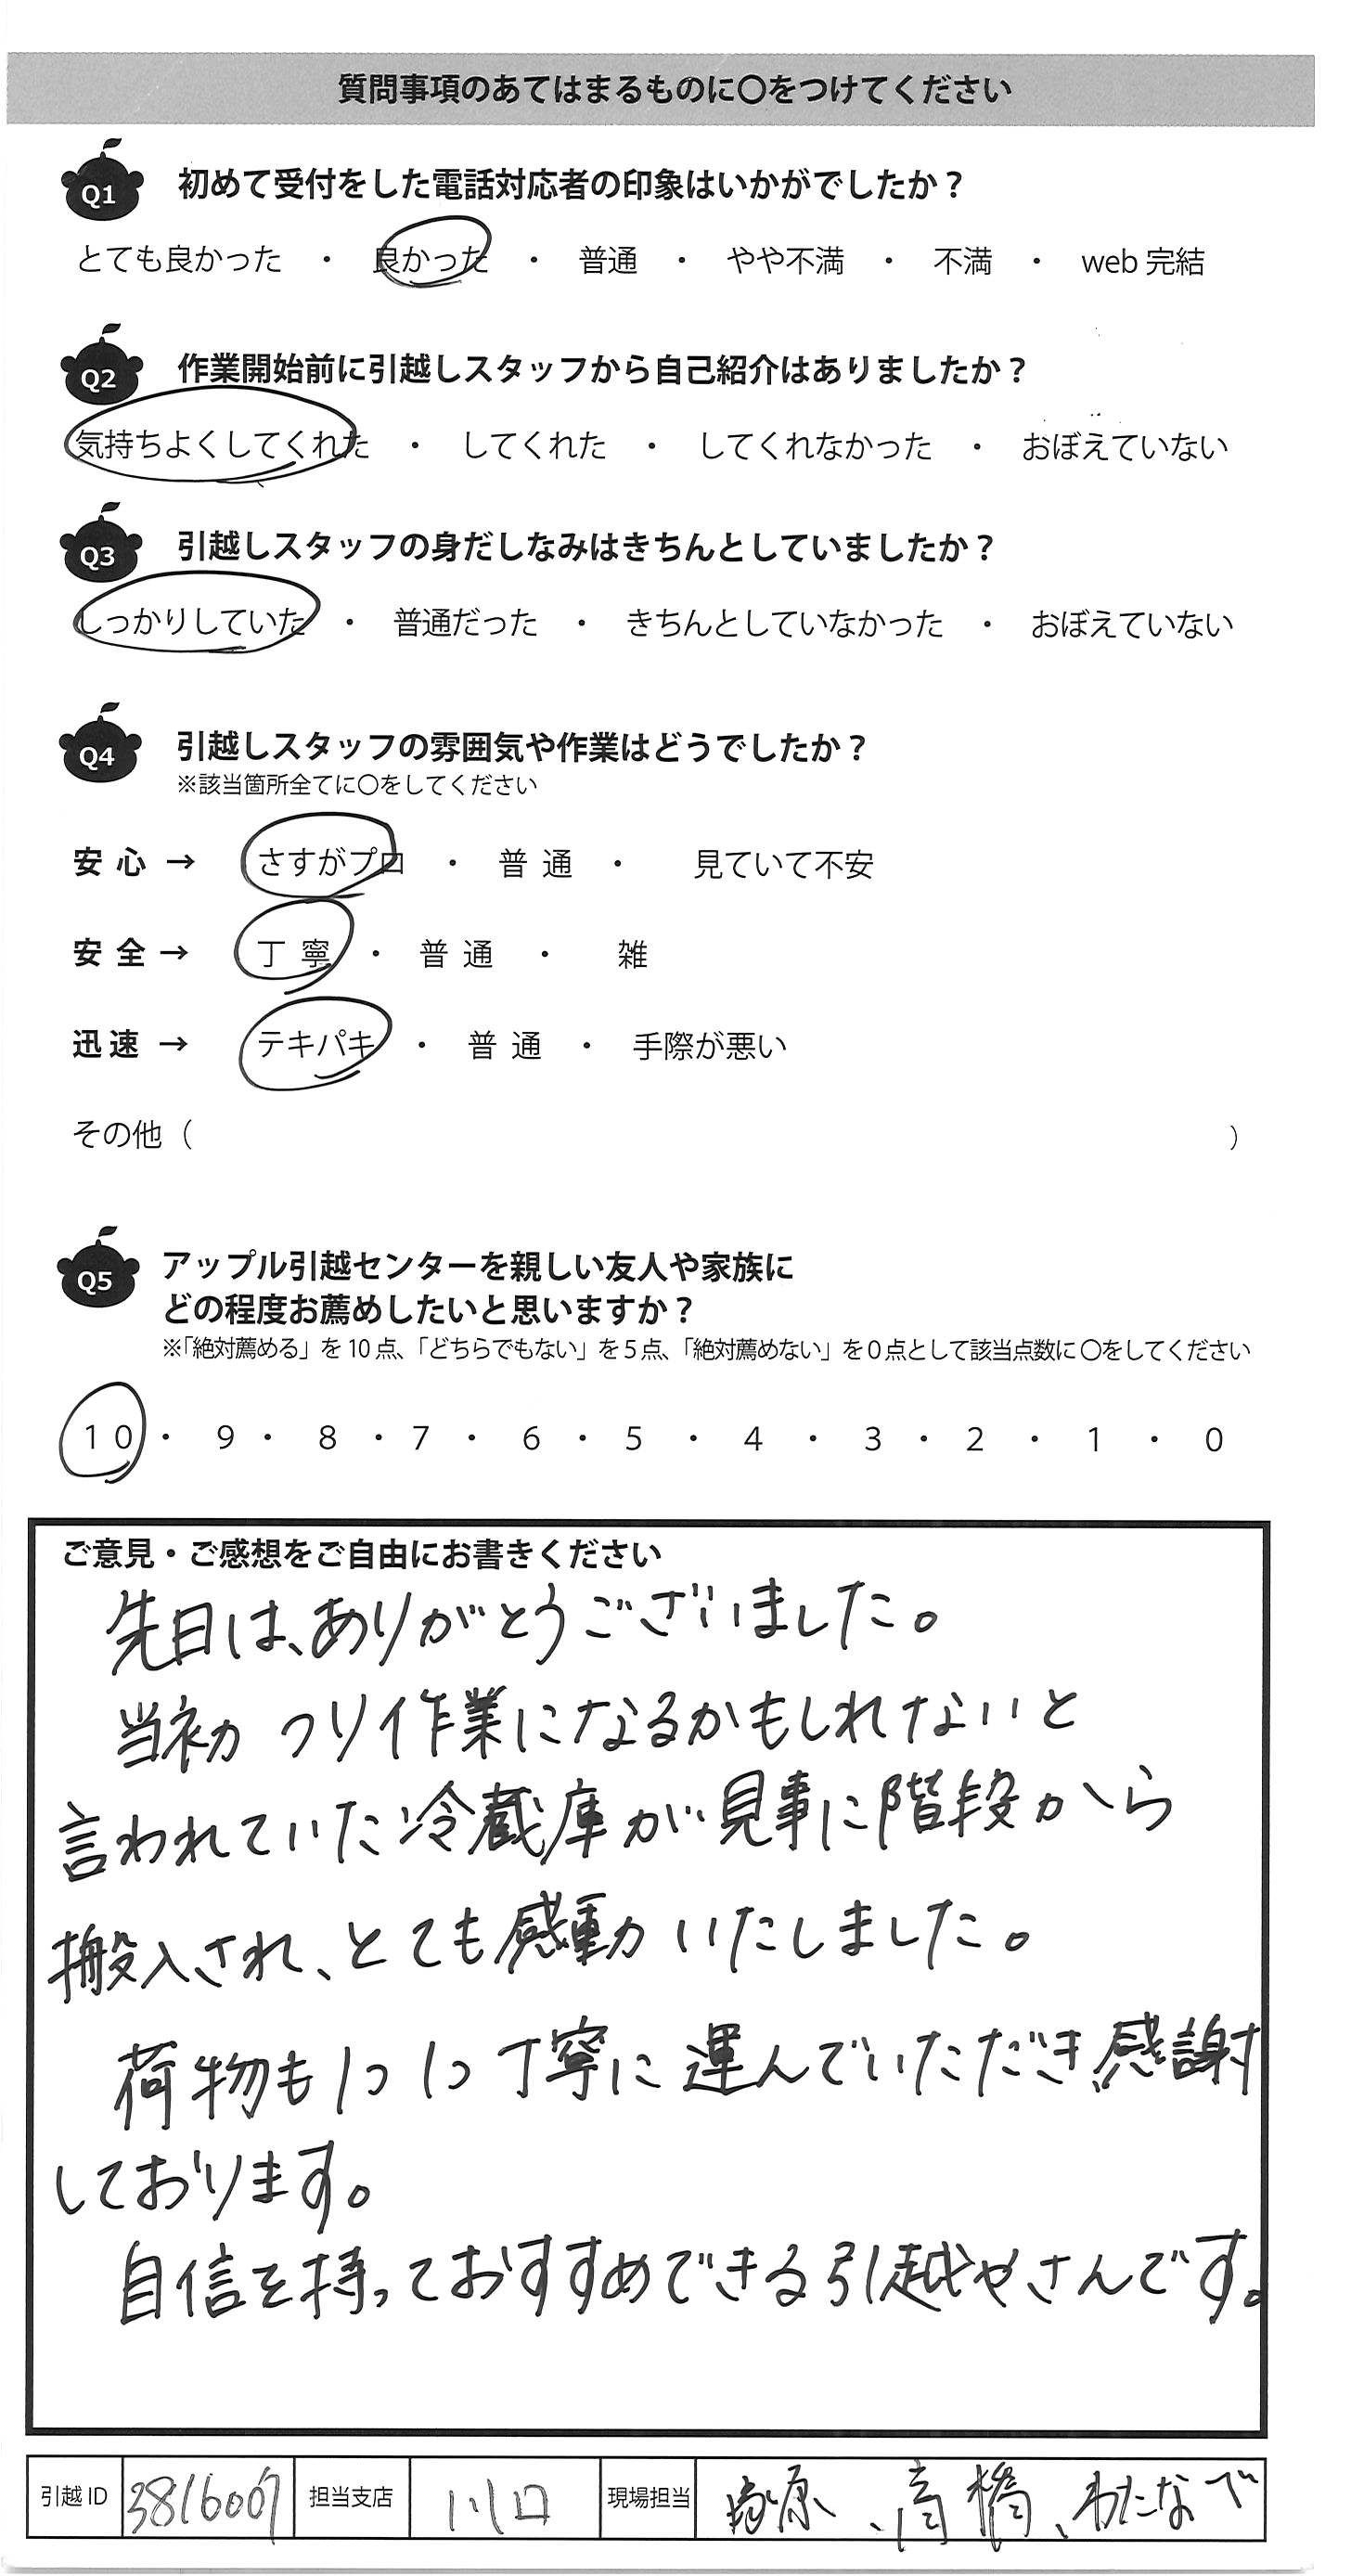 質問事項のあてはまるものに〇をつけてください
Q1 初めて受付をした電話対応者の印象はいかがでしたか？
とても良かった ・ 良かった ・ 普通 ・ やや不満 ・ 不満 ・ web完結
Q2 作業開始前に引越しスタッフから自己紹介はありましたか？
気持ちよくしてくれた ・ してくれた ・ してくれなかった ・ おぼえていない
Q3 引越しスタッフの身だしなみはきちんとしていましたか？
しっかりしていた ・ 普通だった ・ きちんとしていなかった ・ おぼえていない
Q4 引越しスタッフの雰囲気や作業はどうでしたか？
※該当箇所全てに〇をしてください
安心 → さすがプロ ・ 普通 ・ 見ていて不安
安全 → 丁寧 ・ 普通 ・ 雑
迅速 → テキパキ ・ 普通 ・ 手際が悪い
その他（ ）
Q5 アップル引越センターを親しい友人や家族に
どの程度お薦めしたいと思いますか？
※「絶対薦める」を10点、「どちらでもない」を5点、「絶対薦めない」を0点として該当点数に〇をしてください
10 ・ 9 ・ 8 ・ 7 ・ 6 ・ 5 ・ 4 ・ 3 ・ 2 ・ 1 ・ 0
ご意見・ご感想をご自由にお書きください
先日は、ありがとうございました。
当初つり作業になるかもしれないと
言われていた冷蔵庫が見事に階段から
搬入され、とても感動いたしました。
荷物も1つ1つ丁寧に運んでいただき、感謝
しております。
自信を持っておすすめできる引越やさんです。
引越ID 3816007 担当支店 川口 現場担当 塚原、高橋、わたなべ